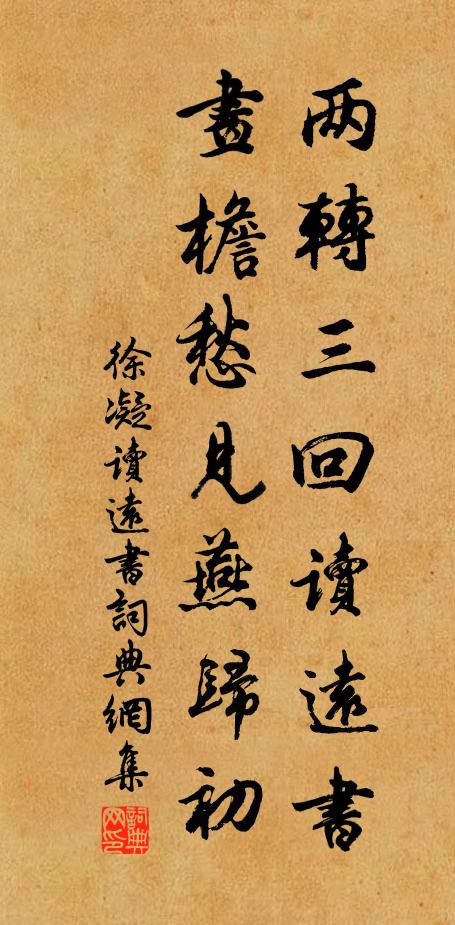 两轉三回讀遠書
畫檐愁見燕歸初
徐凝讀遠書詞典網集
詞典网印